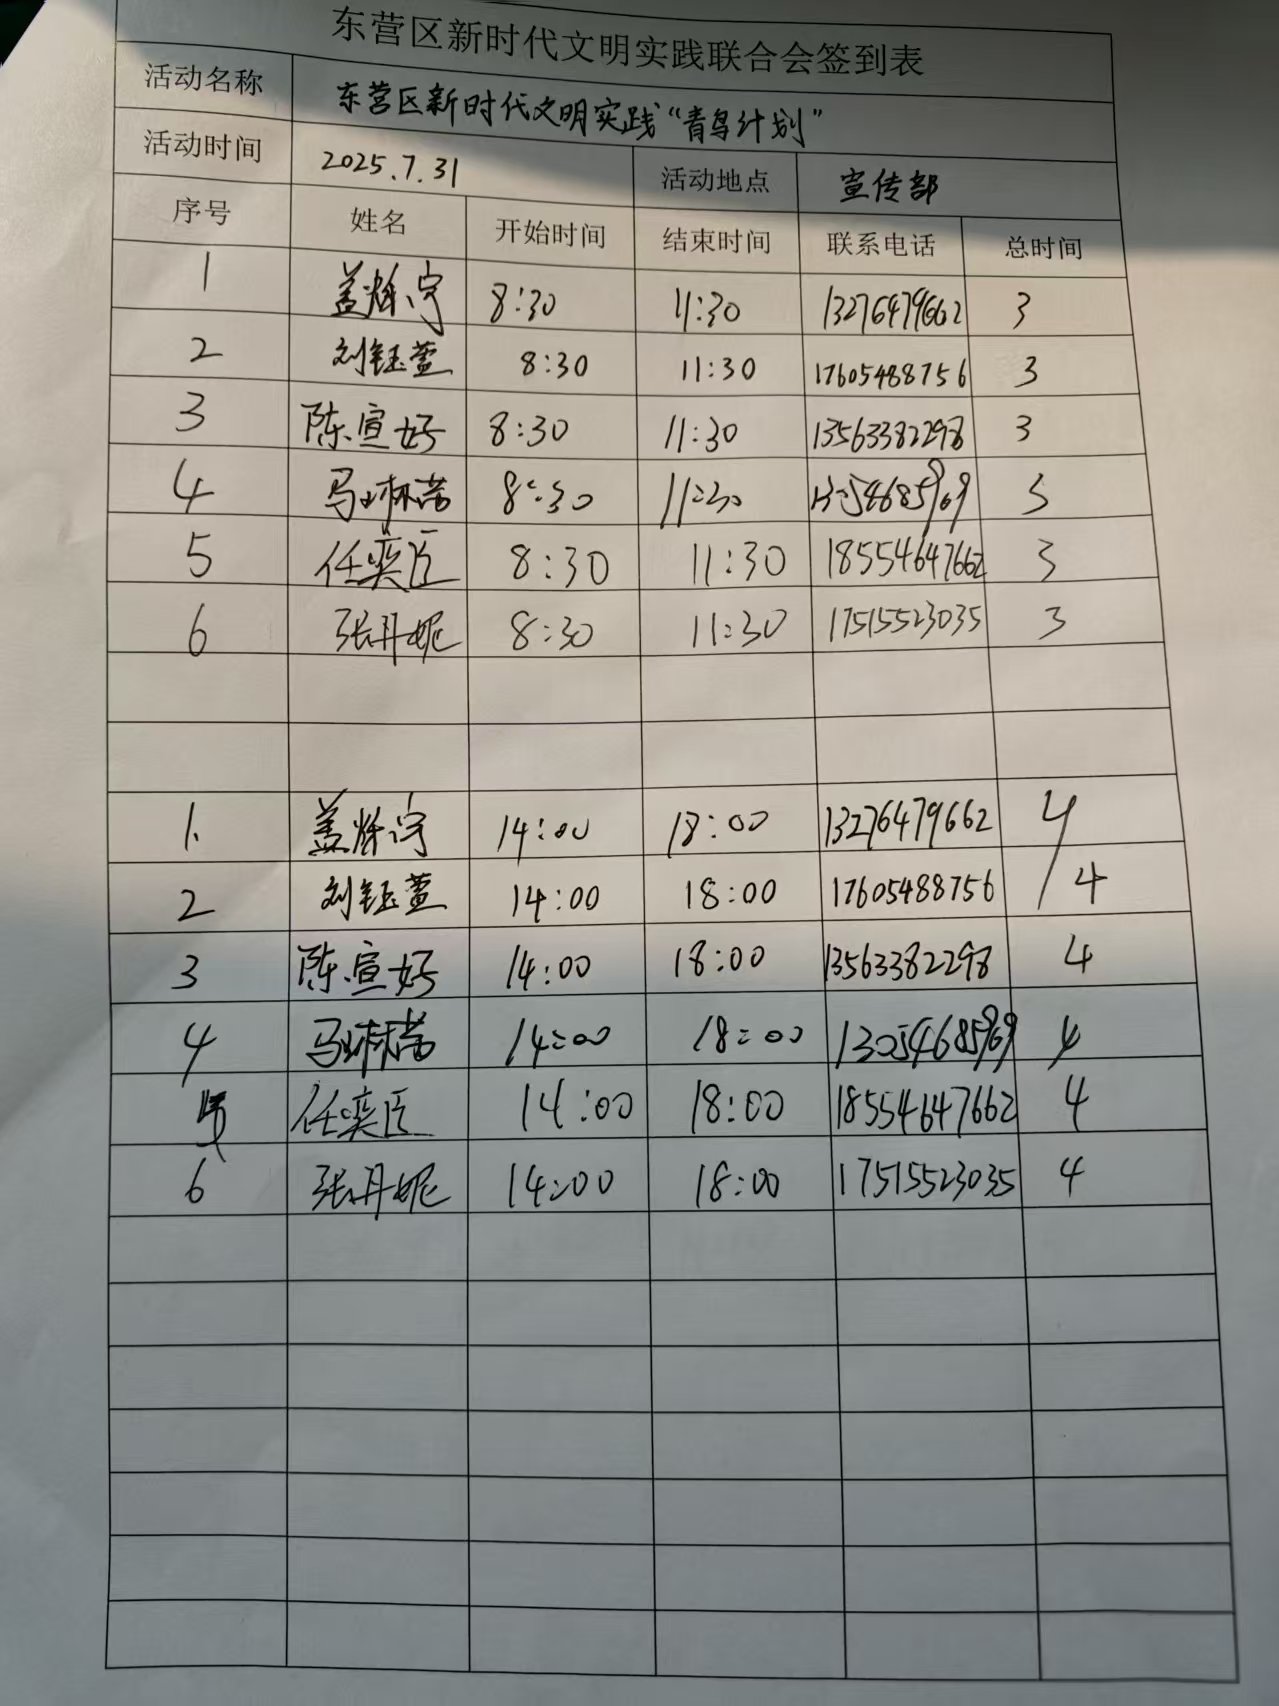 东营区新时代文明实践联合会签到表
活动名称 东营区新时代文明实践“青鸟计划”
活动时间 2025.7.31 活动地点 宣传部
序号 姓名 开始时间 结束时间 联系电话 总时间
1 盖烁宇 8:30 11:30 13276479662 3
2 刘钰萱 8:30 11:30 17605488756 3
3 陈宣好 8:30 11:30 13563382298 3
4 8:30 11:30 3
5 任奕臣 8:30 11:30 18554647662 3
6 张丹妮 8:30 11:30 17515523035 3
1. 盖烁宇 14:00 18:00 13276479662 4
2 刘钰萱 14:00 18:00 17605488756 4
3 陈宣好 14:00 18:00 13563382298 4
4 14:00 18:00 4
5 任奕臣 14:00 18:00 18554647662 4
6 张丹妮 14:00 18:00 17515523035 4